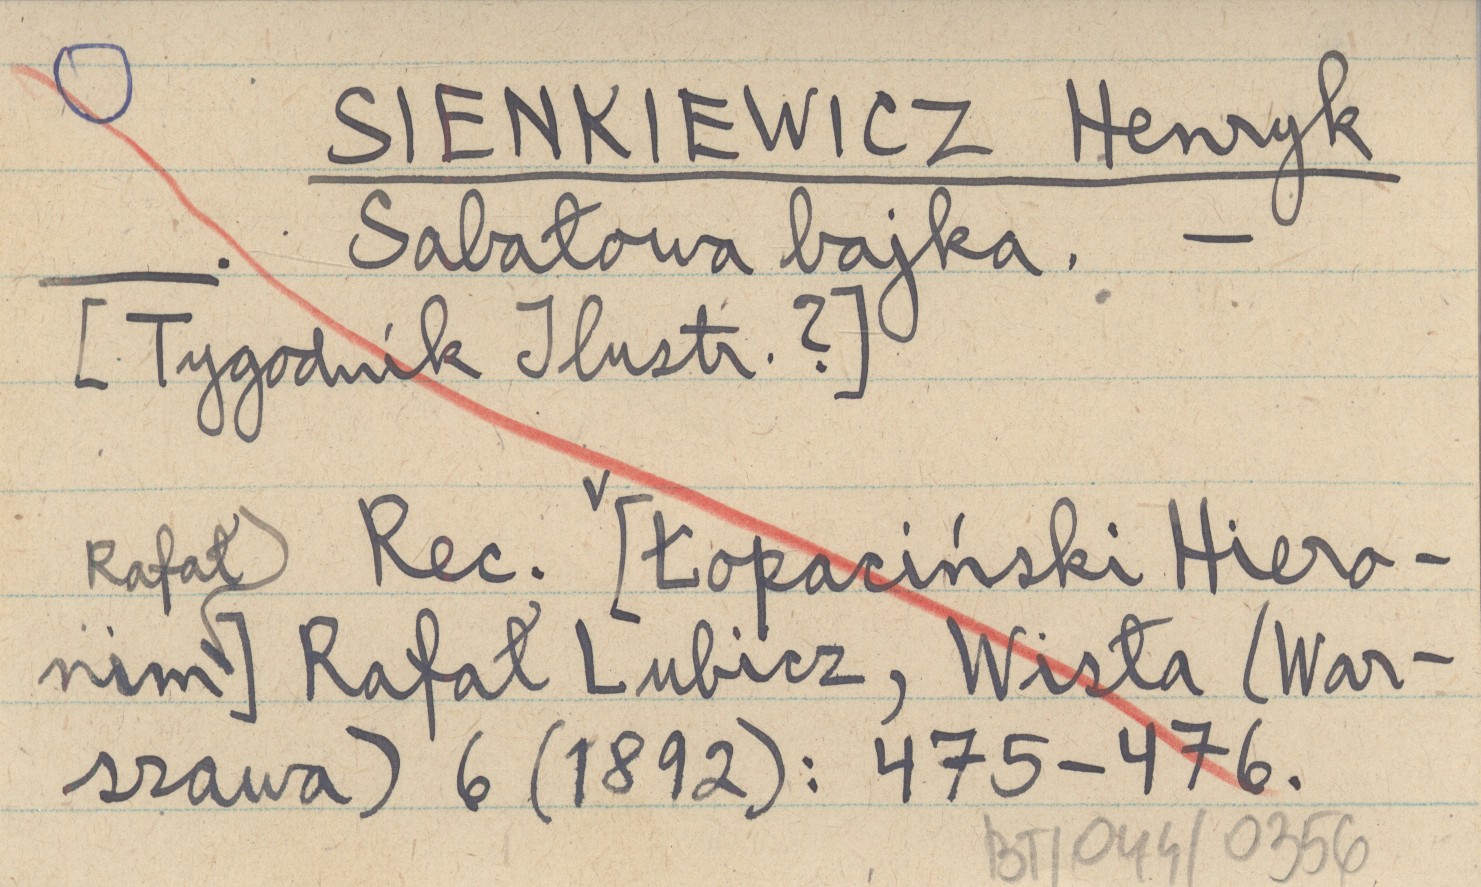 SIENKIEWICZ Henryk
___. Sabałowa bajka. —
[Tygodnik Ilustr. ?]
Rafał) Rec. [Łopaciński Hiero-
nim] Rafał Lubicz, Wisła (War-
szawa) 6 (1892): 475-476.
BT/044/0356